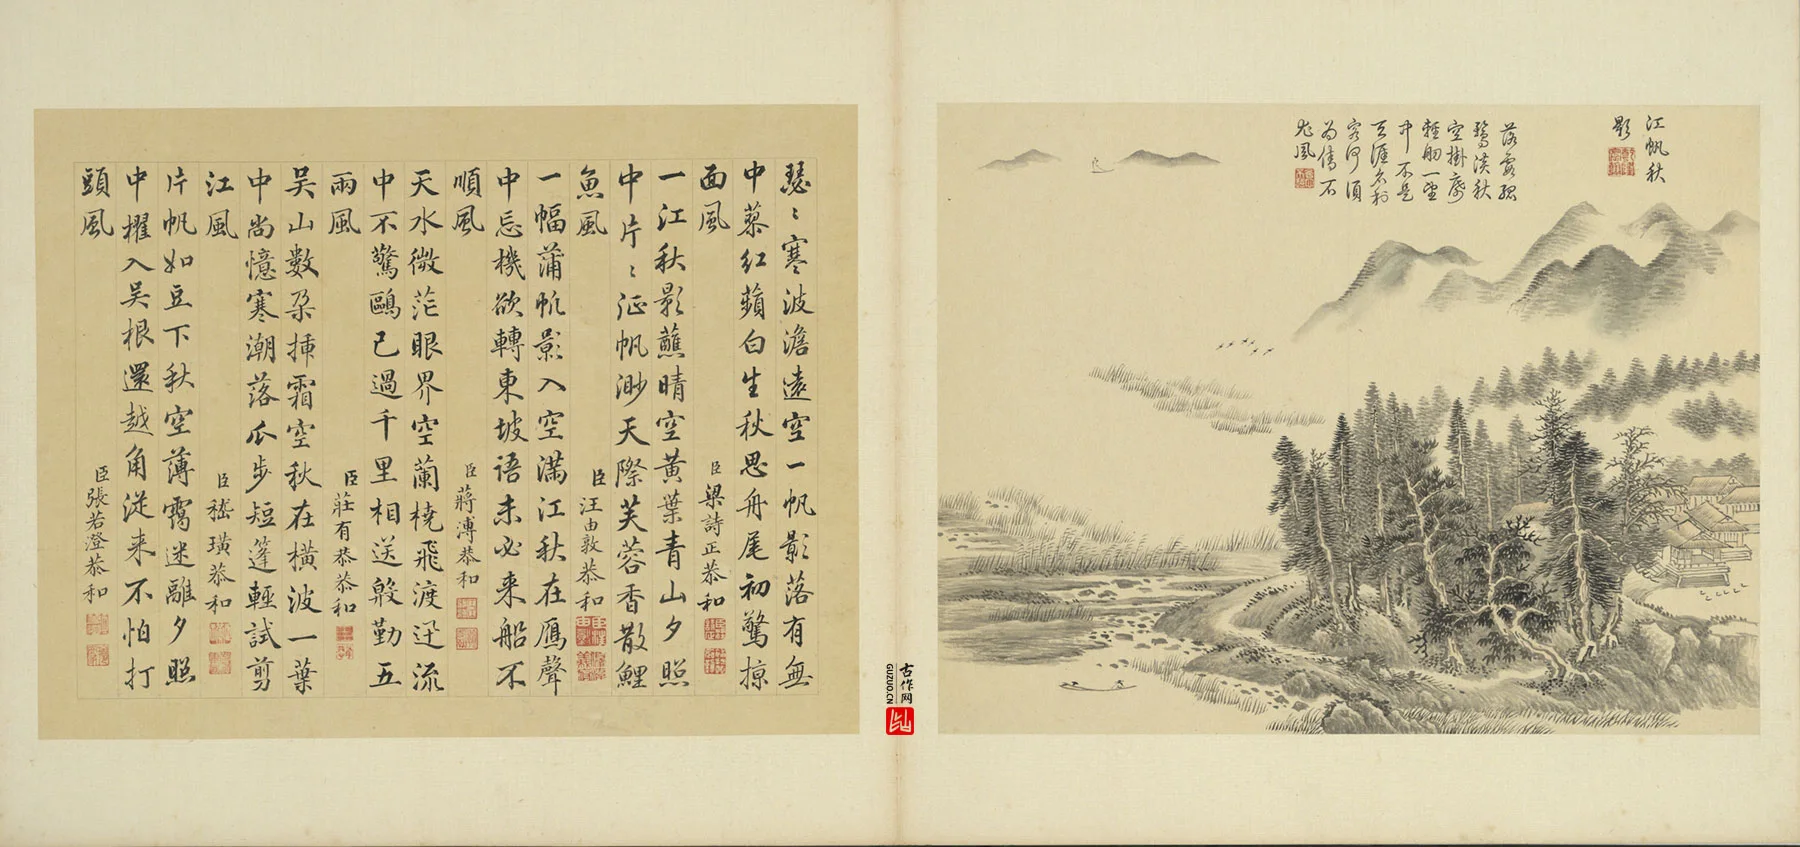 江帆秋
影
落霞孤
鶩淡秋
空掛席
輕舠一望
中不是
天涯名利
客何須
為倩石
尤風
瑟〻寒波澹遠空一帆影落有無
中蓼紅蘋白生秋思舟尾初驚掠
面風
臣梁詩正恭和
一江秋影蘸晴空黃葉青山夕照
中片〻征帆渺天際芙蓉香散鯉
魚風
臣汪由敦恭和
一幅蒲帆影入空滿江秋在鴈聲
中忘機欲轉東坡語未必来船不
順風
臣蔣溥恭和
天水微茫眼界空蘭橈飛渡迅流
中不驚鷗已過千里相送殷勤五
兩風
臣莊有恭恭和
吳山數朶插霜空秋在橫波一葉
中尚憶寒潮落瓜步短篷輕試剪
江風
臣嵇璜恭和
片帆如豆下秋空薄靄迷離夕照
中櫂入吳根還越角從来不怕打
頭風
臣張若澄恭和
古作网
GUZUO.CN